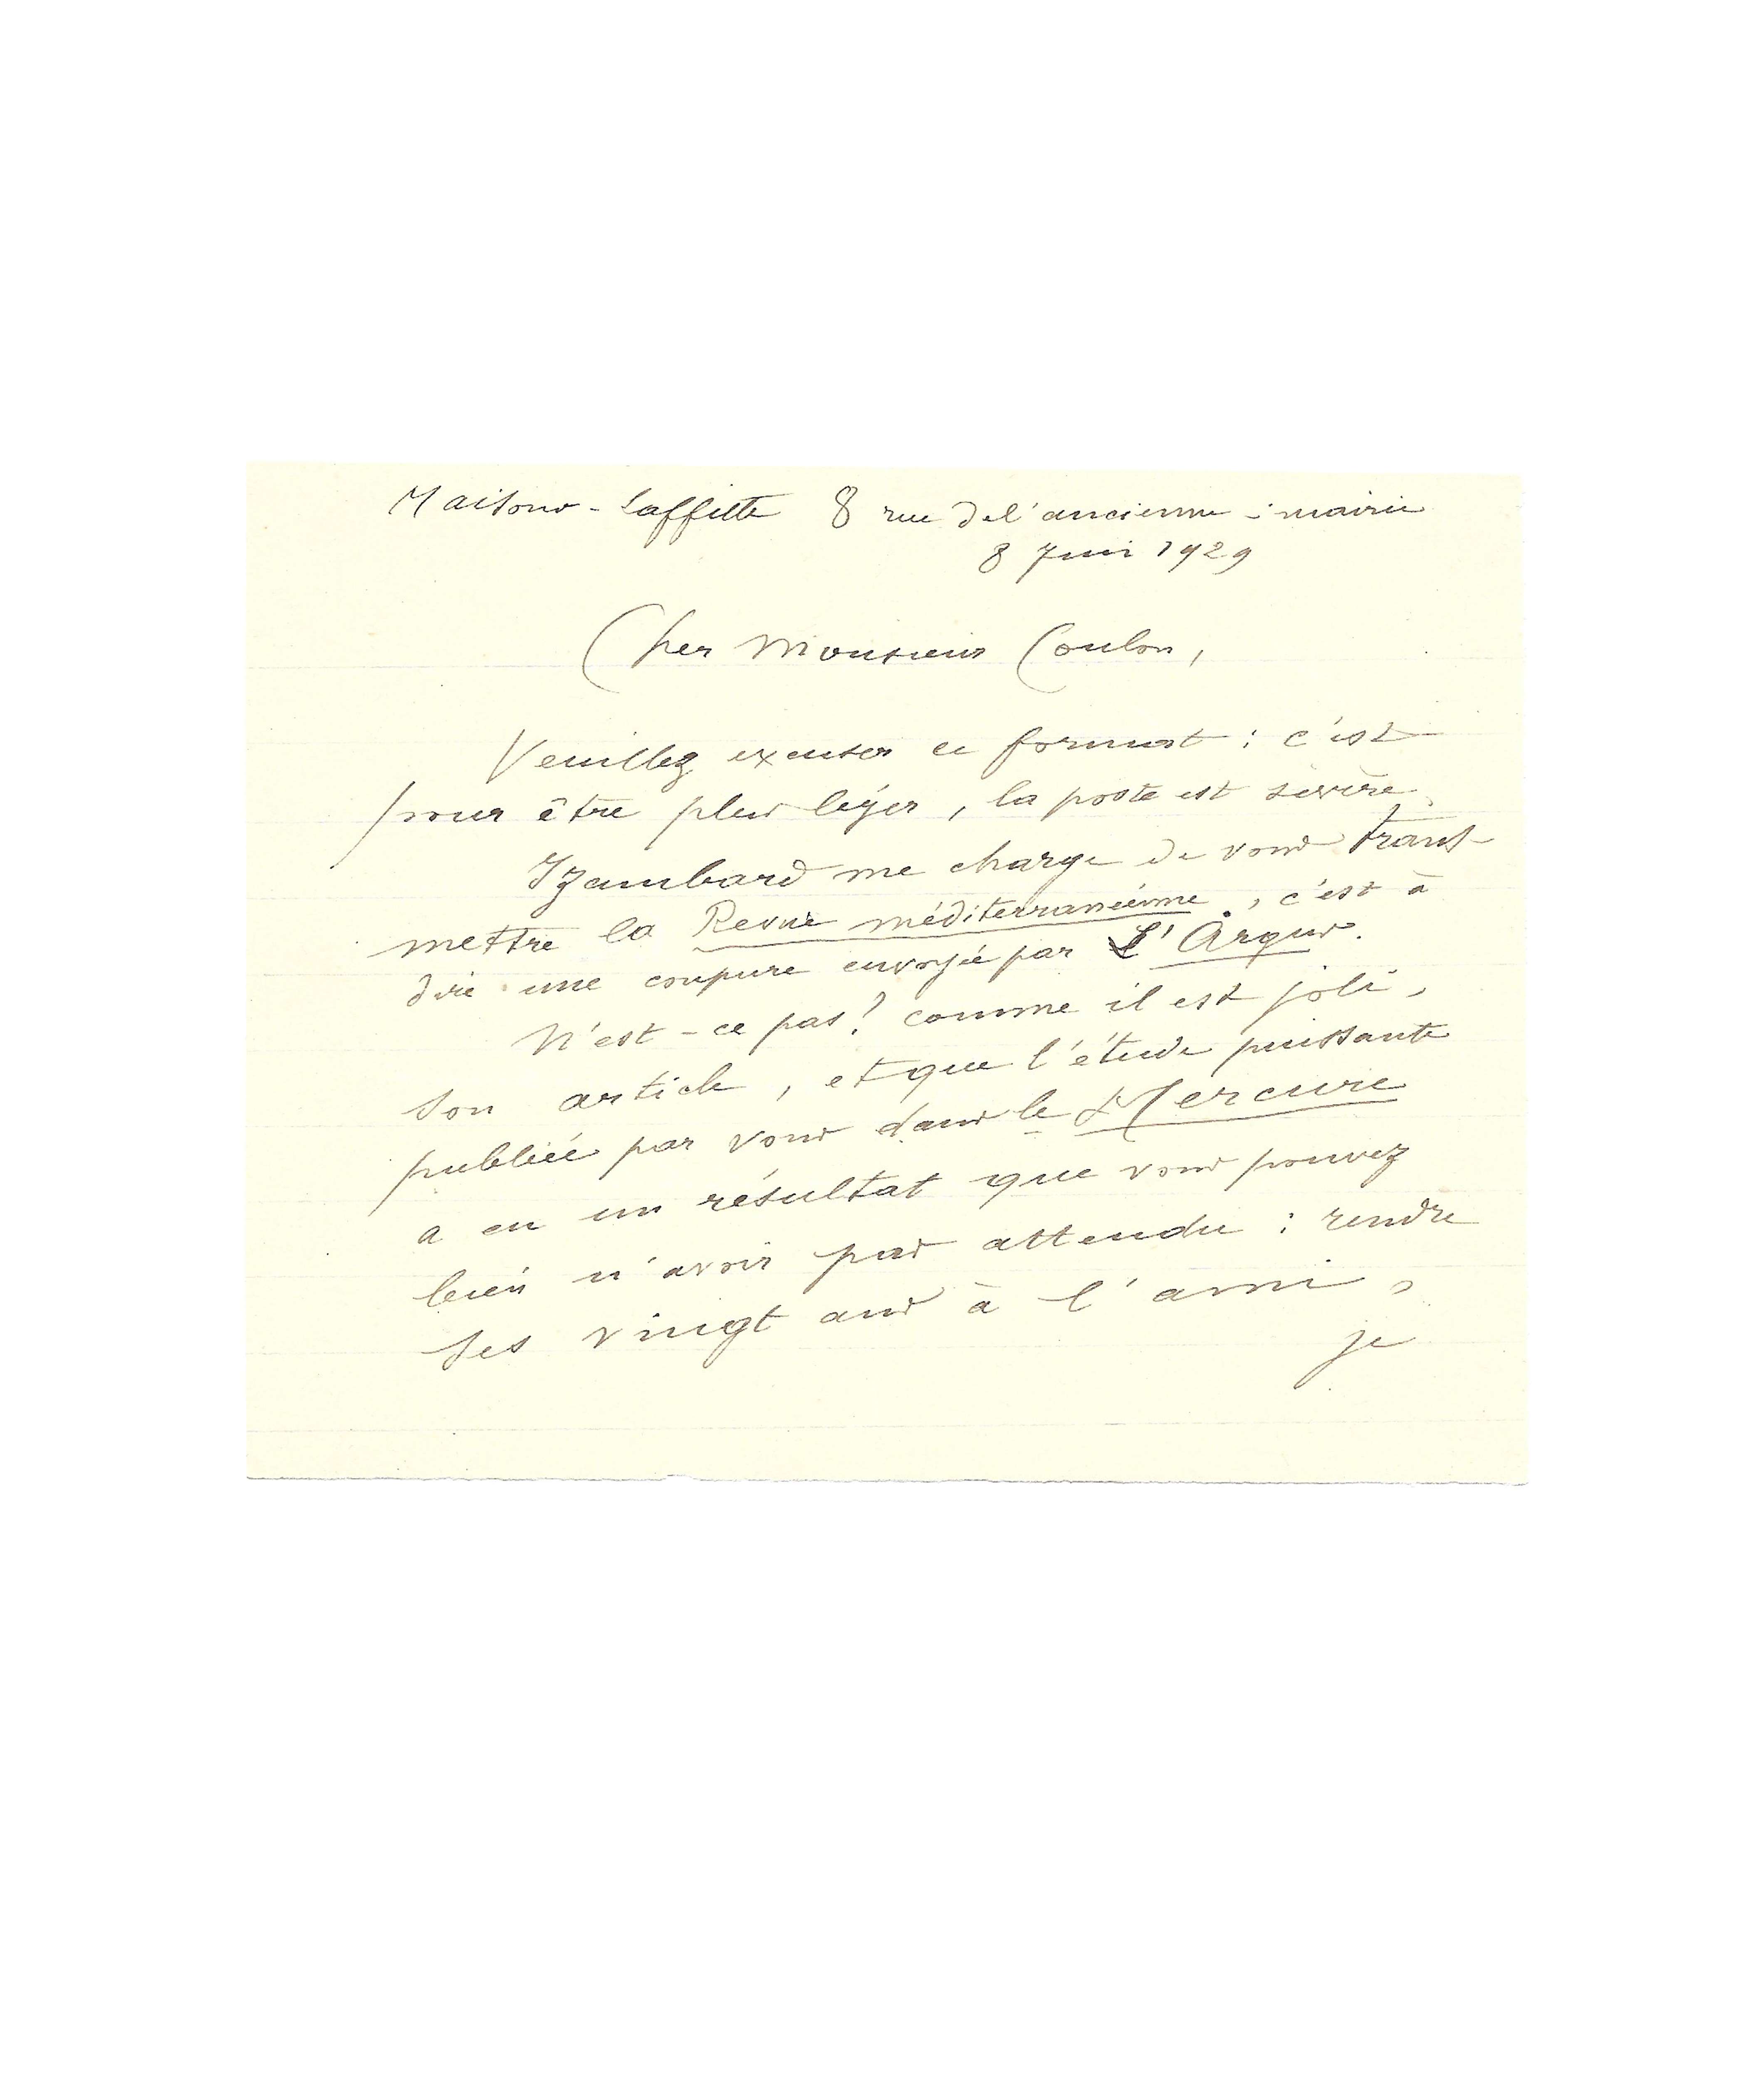 Maisons-Laffitte 8 rue de l'ancienne-mairie
8 Juin 1929
Cher Monsieur Coulon,
Veuillez excuser ce format : c'est
pour être plus léger, la poste est sévère.
Izambard me charge de vous trans-
mettre la Revue méditerranéenne, c'est à
dire une coupure envoyée par L'Argus.
N'est-ce pas? comme il est joli,
son article, et que l'étude puissante
publiée par vous dans le Mercure
a eu un résultat que vous pouvez
bien n'avoir pas attendu : rendre
ses vingt ans à l'ami,
je